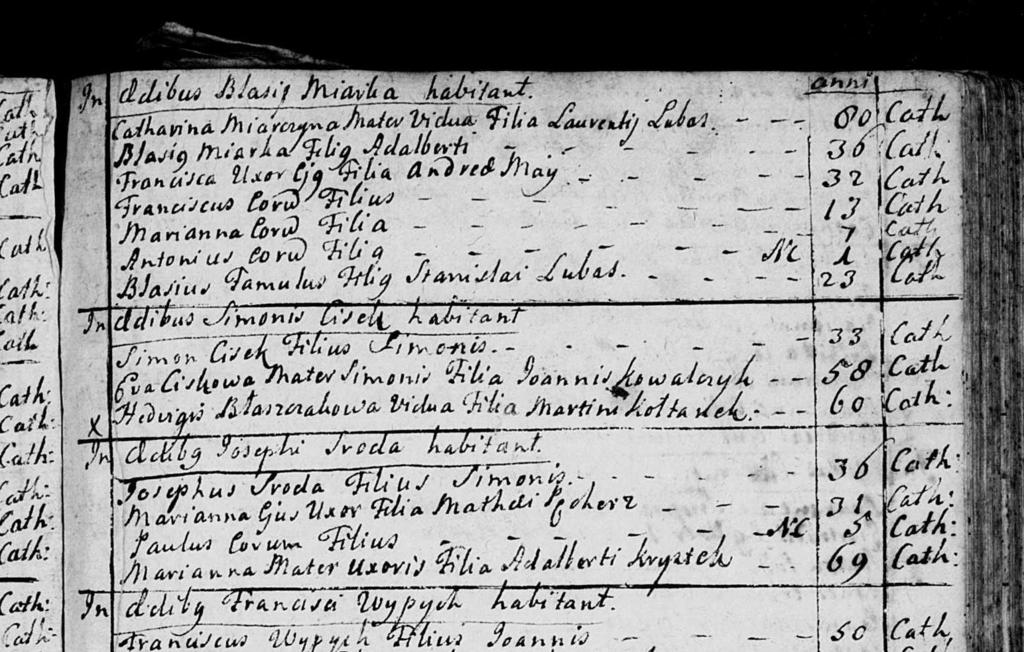 anni
In Ædibus Blasij Miarka habitant.
Catharina Miarczyna Mater Vidua Filia Laurentij Lubas. - - - 80 Cath
Blasig Miarka Filig Adalberti - - - - - - 36 Cath
Francisca Uxor Ejg Filia Andreæ May - - - - - 32 Cath
Franciscus Corū Filius - - - - - - - - 13 Cath
Marianna Corū Filia - - - - - - - - 7 Cath
Antonius Corū Filig - - - - - - NC 1 Cath
Blasius Famulus Filig Stanislai Lubas. - - - - 23 Cath
In Ædibus Simonis Cisek habitant
Simon Cisek Filius Simonis. - - - - - - 33 Cath
Eva Ciskowa Mater Simonis Filia Ioannis Kowalczyk - - 58 Cath
X Hedvigis Błaszczakowa Vidua Filia Martini Kołtanek. - - 60 Cath:
In Ædibg Iosephi Sroda habitant.
Iosephus Sroda Filius Simonis. - - - - - 36 Cath:
Marianna Ejus Uxor Filia Mathæi - - - - 31 Cath:
Paulus Corum Filius - - - - - - NC 5 Cath:
Marianna Mater Uxoris Filia Adalberti Krystek - - 69 Cath:
In Ædibg Francisci Wypych habitant.
Franciscus Wypych Filius Ioannis - - - - - 50 Cath,